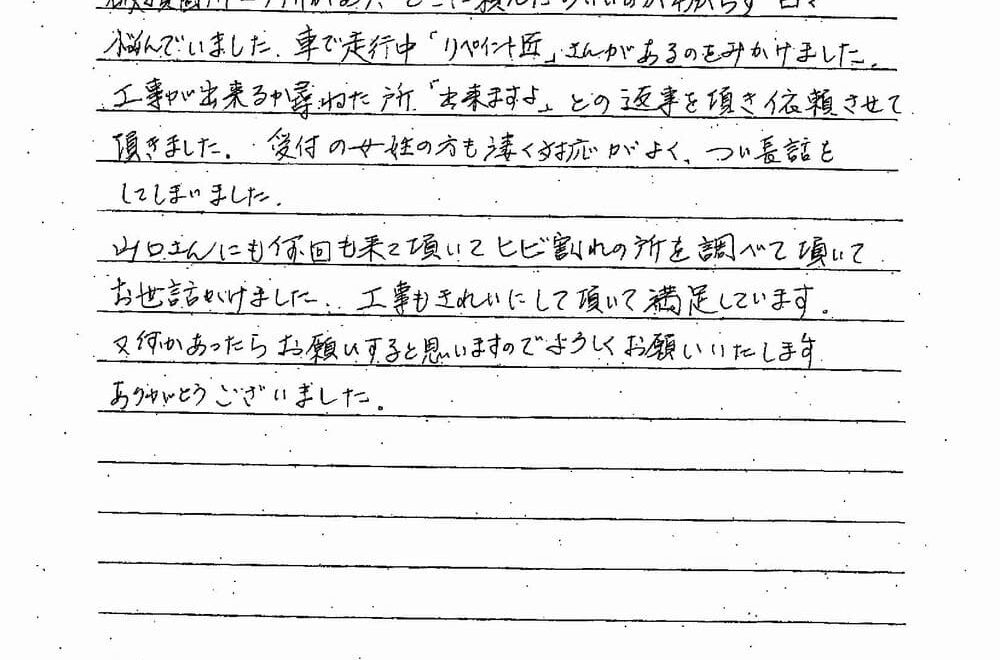 どこに頼んだらいいのかわからず 日々
悩んでいました。車で走行中「リペイント匠」さんがあるのをみかけました。
工事が出来るか尋ねた所「出来ますよ」との返事を頂き依頼させて
頂きました。受付の女性の方も凄く対応がよく、つい長話を
してしまいました。
山口さんにも何回も来て頂いてヒビ割れの所を調べて頂いて
お世話かけました。工事もきれいにして頂いて満足しています。
又何かあったらお願いすると思いますのでようしくお願いいたします
ありがとうございました。